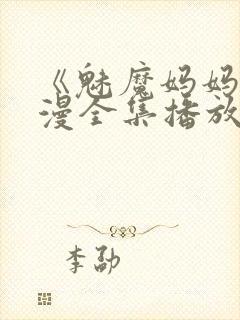 《魅魔妈妈
漫全集播放
李勐